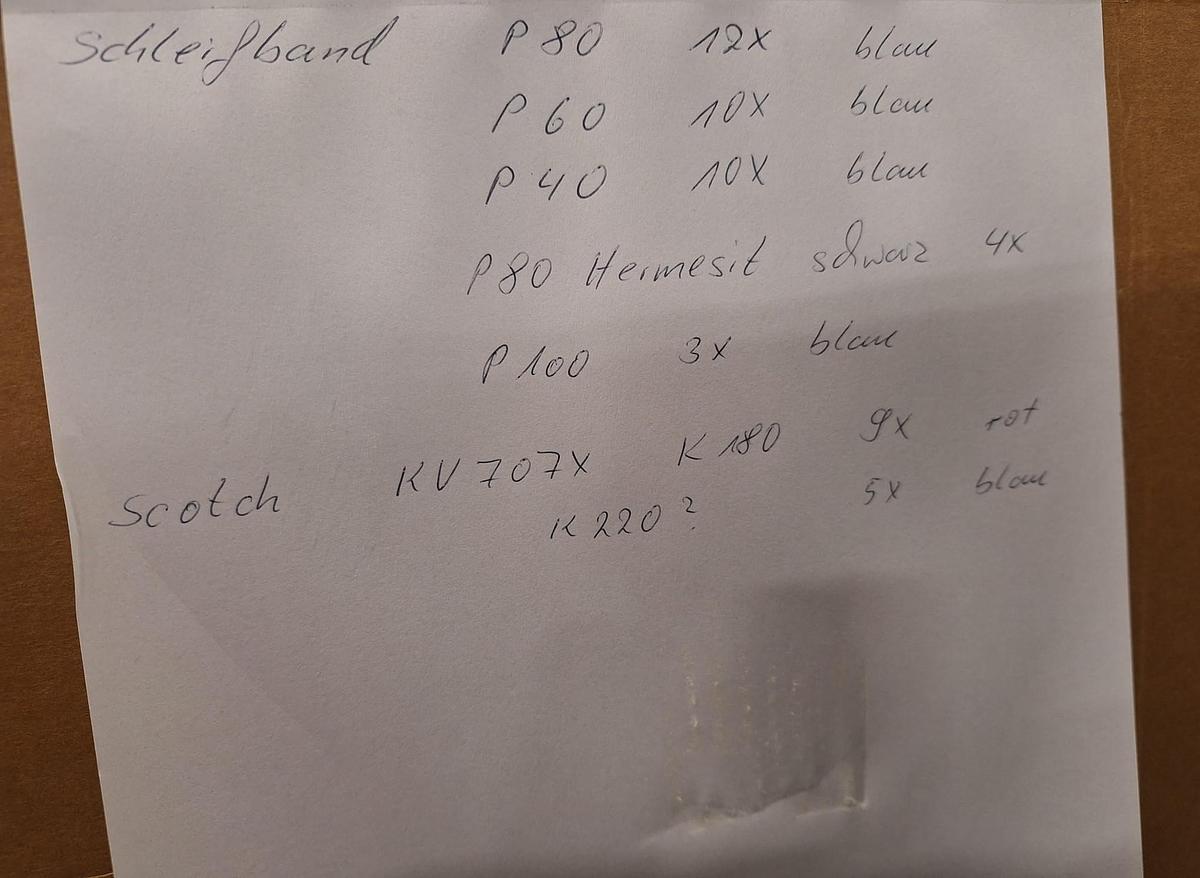 Schleifband P 80 12x blau
P 60 10x blau
P 40 10x blau
P80 Hermesit schwarz 4x
P 100 3x blau
Scotch KV 707x K 180 9x rot
K 220? 5x blau